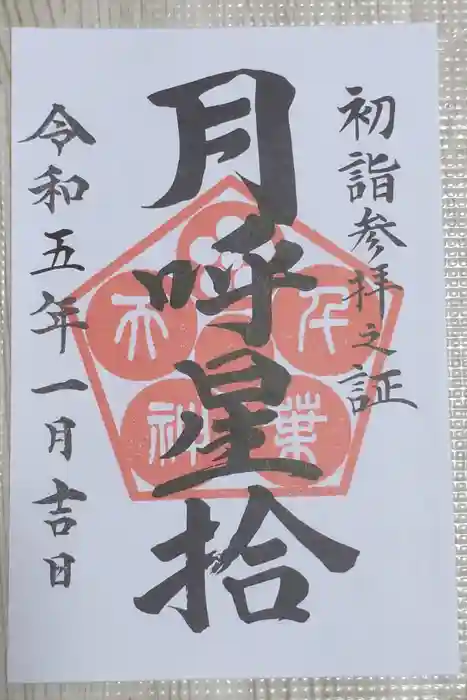 初詣参拝之証
月呼星拾
令和五年一月吉日